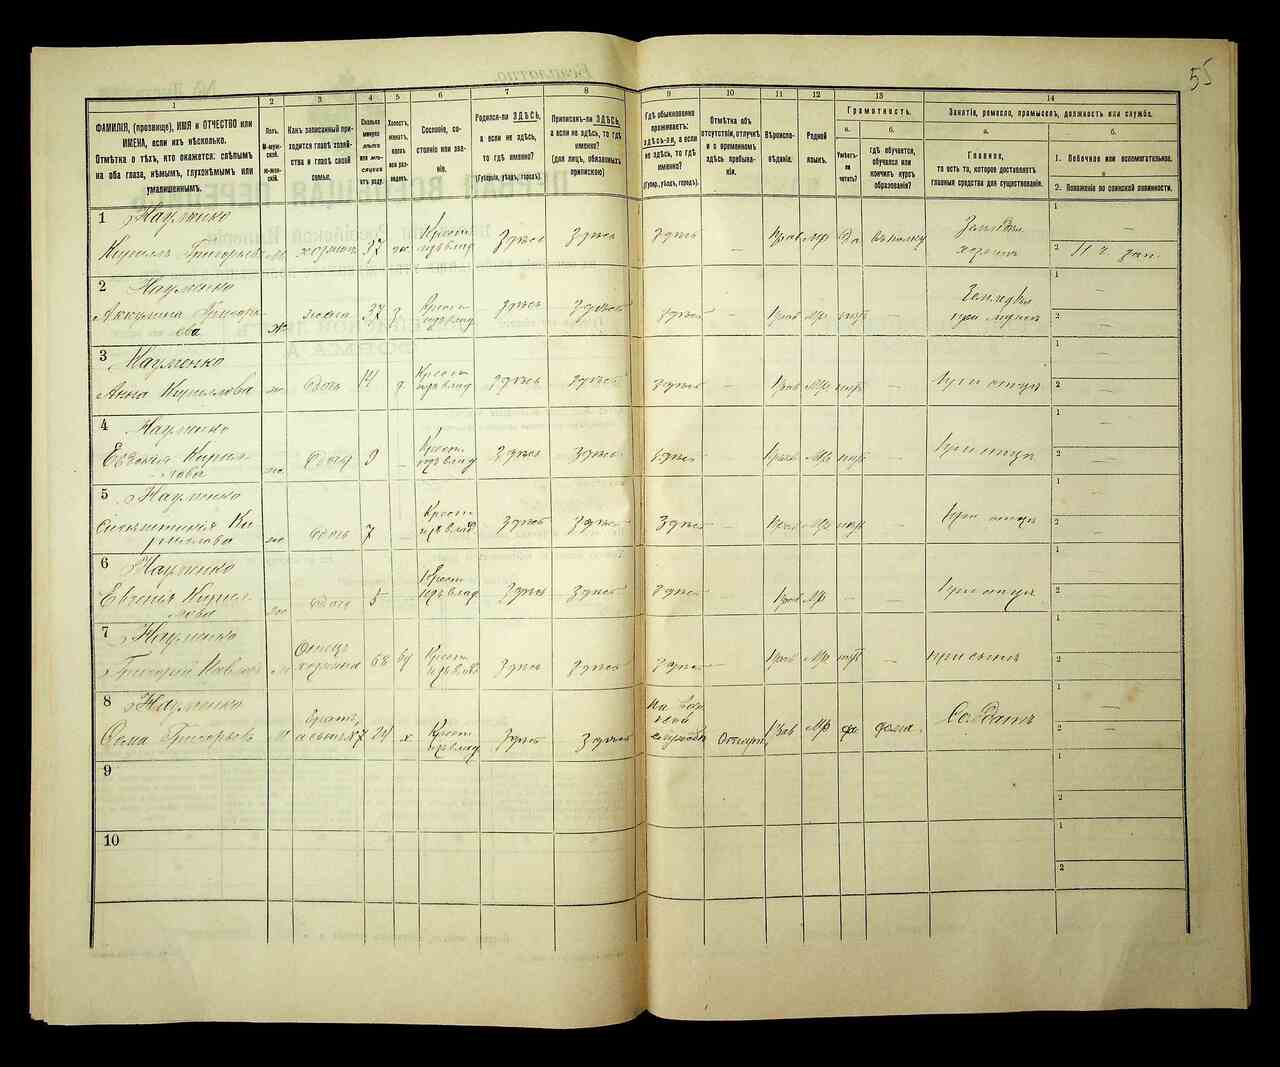 55
1
2
3
4
5
6
7
8
9
10
11
12
13
14
ФАМИЛІЯ, (прозвище), ИМЯ и ОТЧЕСТВО или
ИМЕНА, если ихъ нѣсколько.
Отмѣтка о тѣхъ, кто окажется: слѣпымъ
на оба глаза, нѣмымъ, глухонѣмымъ или
умалишеннымъ.
Полъ.
М-мужской.
Ж-женскій.
Какъ записанный при-
ходится главѣ хозяй-
ства и главѣ своей
семьи.
Сколько
минуло
лѣтъ
или мѣ-
сяцевъ
отъ роду.
Холостъ,
женатъ,
вдовъ
или раз-
веденъ.
Сословіе, со-
стояніе или зва-
ніе.
Родился-ли ЗДѢСЬ,
а если не здѣсь,
то гдѣ именно?
(Губернія, уѣздъ, городъ).
Приписанъ-ли ЗДѢСЬ,
а если не здѣсь, то гдѣ
именно?
(для лицъ, обязанныхъ
припискою)
Гдѣ обыкновенно
проживаетъ:
здѣсь-ли, а если
не здѣсь, то гдѣ
именно?
(Губер., уѣздъ, городъ).
Отмѣтка объ
отсутствіи, отлучкѣ
и о временномъ
здѣсь пребыва-
ніи.
Вѣроиспо-
вѣданіе.
Родной
языкъ.
Грамотность.
а.
Умѣетъ-
ли
читать?
б.
гдѣ обучается,
обучался или
кончилъ курсъ
образованія?
Занятіе, ремесло, промыселъ, должность или служба.
а.
Главное,
то есть то, которое доставляетъ
главныя средства для существованія.
б.
1. Побочное или вспомогательное.
2. Положеніе по воинской повинности.
1 Науменко
Кириллъ Григорьевъ м хозяинъ 37 ж Крест. изъ влад здѣсь здѣсь здѣсь — Прав МР да въ полку Земледѣл. хозяинъ
1 —
2
2 Науменко
Аккулина Григорь-
ева ж жена 37 з Крест. изъ влад здѣсь здѣсь здѣсь — Прав МР нѣтъ — Земледѣл. при мужѣ
1 —
2 —
3 Науменко
Анна Кириллова ж дочь 14 д Крест. изъ влад здѣсь здѣсь здѣсь — Прав МР нѣтъ — при отцѣ
1 —
2 —
4 Науменко
Кирил-
лова ж дочь 9 — Крест. изъ влад здѣсь здѣсь здѣсь — Прав МР нѣтъ — при отцѣ
1 —
2 —
5 Науменко
Ки-
риллова ж дочь 7 — Крест. изъ влад здѣсь здѣсь здѣсь — Прав МР нѣтъ — при отцѣ
1 —
2 —
6 Науменко
Евгенія Кирил-
лова ж дочь 5 — Крест. изъ влад здѣсь здѣсь здѣсь — Прав МР — при отцѣ
1 —
2 —
7 Науменко
Григорій Павловъ м Отецъ хозяина 68 Крест. изъ влад здѣсь здѣсь здѣсь — Прав МР нѣтъ — при сынѣ
1 —
2 —
8 Науменко
Ѳома Григорьевъ м братъ 24 х Крест. изъ влад здѣсь здѣсь службѣ Прав МР да дома Солдатъ
1 —
2 —
9
1
2
10
1
2